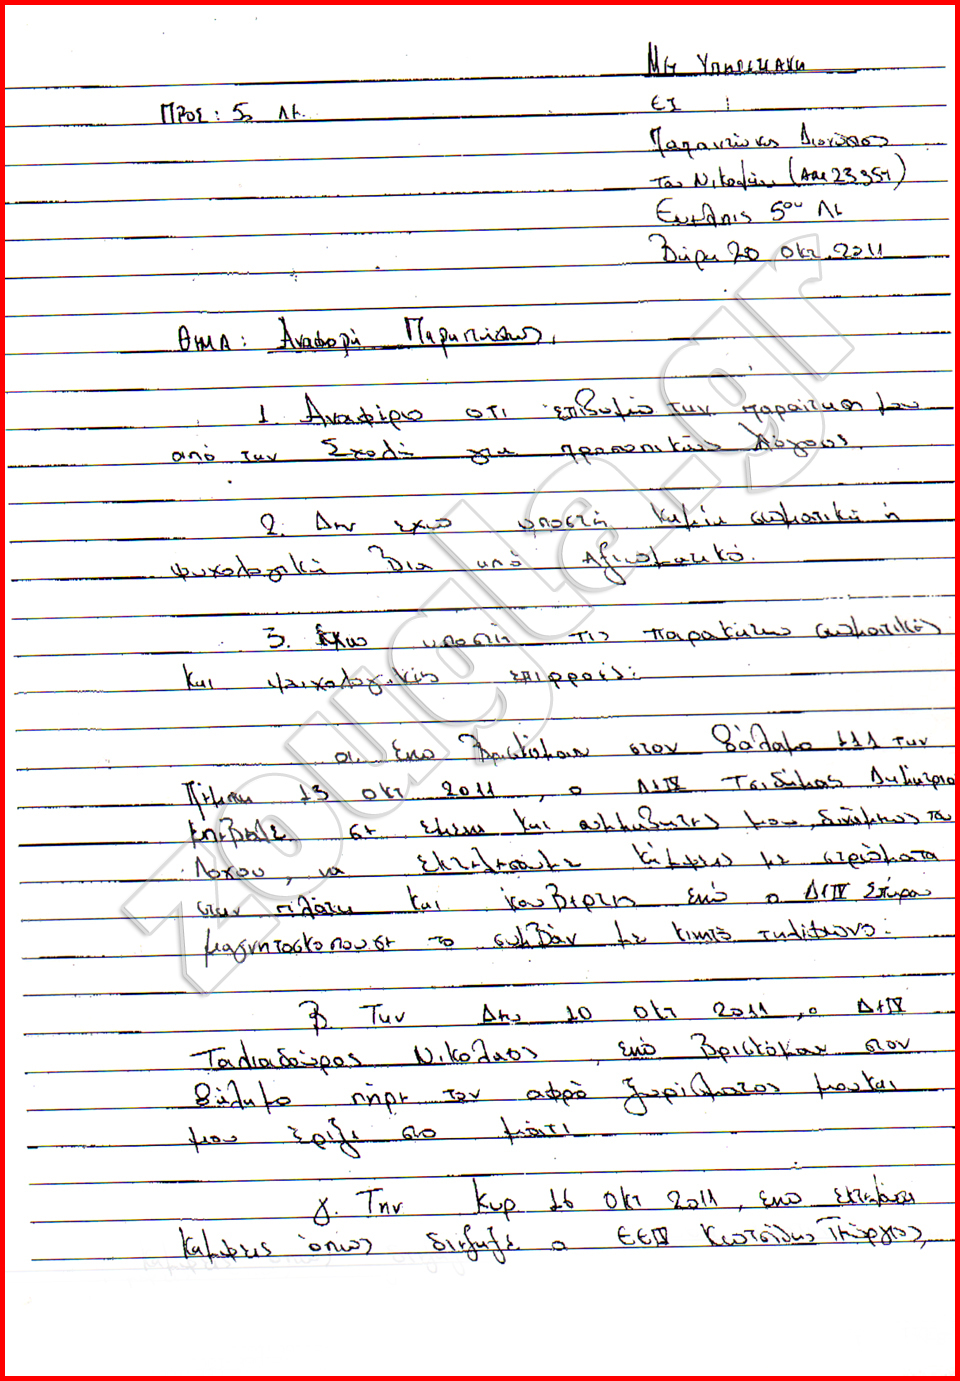 Μη Υπηρεσιακη
ΠΡΟΣ: 5ο Λχ.
ΕΞ :
Παπαντώνης Διονύσιος
του Νικολάου (ΑΜ: 23354)
Ευέλπις 5ου Λχ
Βάρη 20 Οκτ. 2011
ΘΕΜΑ: Αναφορά Παραιτήσεως.
1. Αναφέρω οτι επιθυμώ την παραίτηση μου
από την Σχολή για προσωπικούς λόγους.
2. Δεν έχω υποστή καμία σωματική ή
ψυχολογική βια από Αξιωματικό.
3. Έχω υποστή τις παρακάτω σωματικές
και ψυχολογικές επιρροές:
α. Ενω βρισκόμουν στον θάλαμο 111 την
Πέμπτη 13 Οκτ 2011, ο ΔτΙV Δημήτριο
επέβαλε σε εμενα και συμμαθητες μου, διοπους του
Λοχου, να εκτελέσουμε κάμψεις με στρώματα
στην πλάτη και κουβερτες ενώ ο ΔτΙV Σπύρου
μαγνητοσκοπουσε το συμβάν με κινητό τηλέφωνο.
β Την Δευ 10 Οκτ 2011, ο ΔτΙV
Ταλιαδούρος Νικόλαος, ενώ βρισκόμουν στον
θάλαμο πήρε τον αφρό ξυρίσματος μου και
μου έριξε στο μάτι
γ. Την Κυρ 16 Οκτ 2011, ενω εκτελούσα
καμψεις όπως διέταξε ο ΕΕΙV Γεώργιος,
zougla.gr